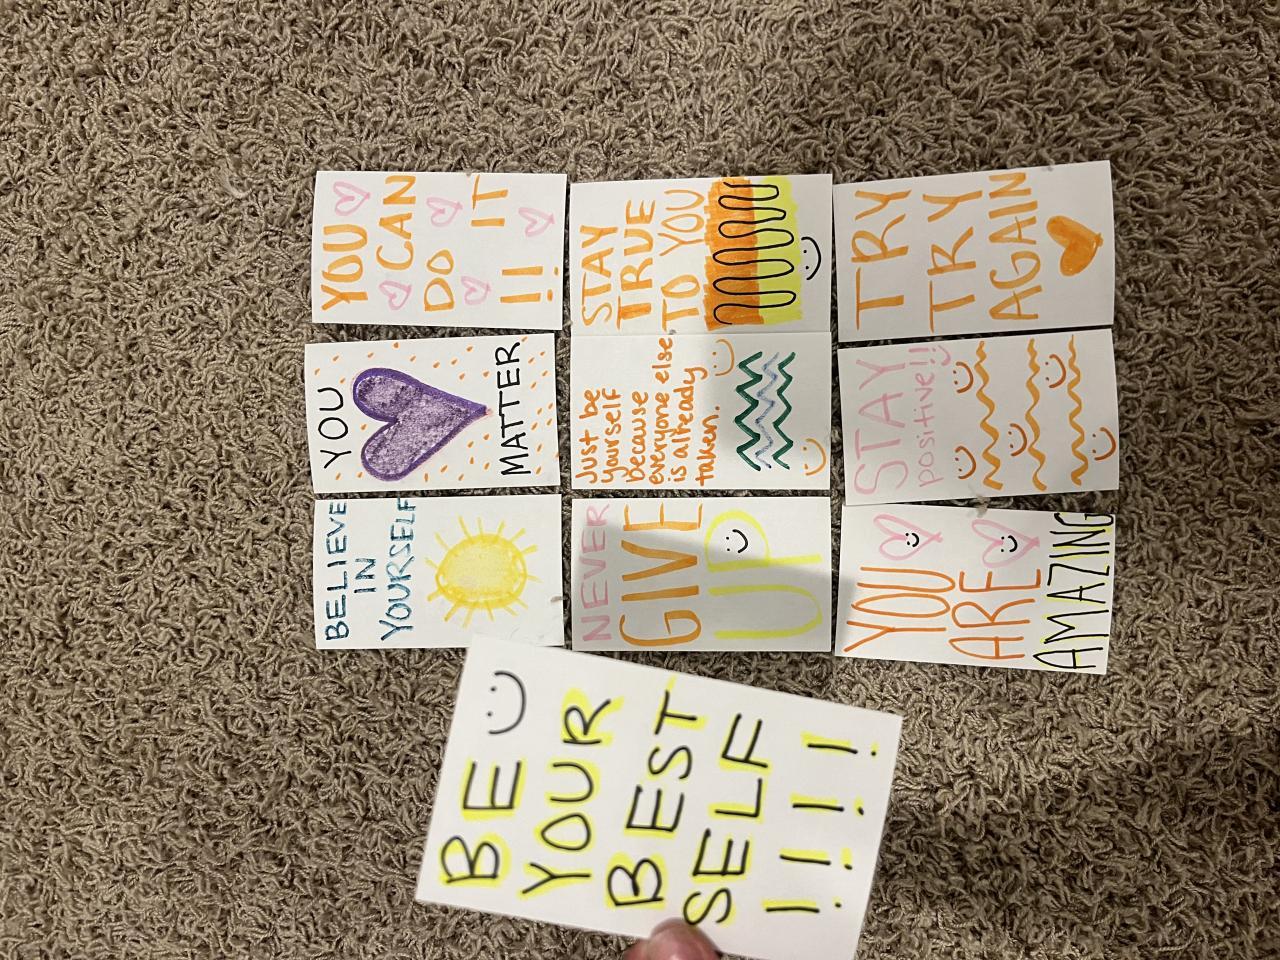 YOU
CAN
DO IT
!!
STAY
TRUE
TO YOU
TRY
TRY
AGAIN
YOU
MATTER
Just be
yourself
because
everyone else
is already
taken.
STAY
positive!!
BELIEVE
IN
YOURSELF
NEVER
GIVE
UP
YOU
ARE
AMAZING
BE
YOUR
BEST
SELF
!!!!